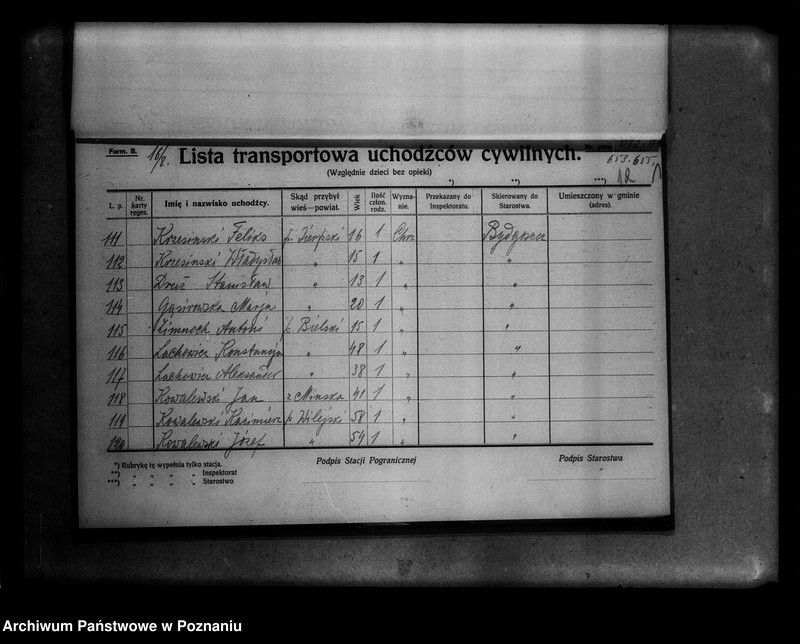 Form. B. 16/2. Lista transportowa uchodźców cywilnych. 653.655
(Względnie dzieci bez opieki)
*) **) ***) 12
L. p. Nr. karty reges. Imię i nazwisko uchodźcy. Skąd przybył wieś—powiat. Wiek Ilość człon. rodz. Wyzna- nie. Przekazany do Inspektoratu. Skierowany do Starostwa. Umieszczony w gminie (adres).
111 Krzesinski Feliks p. Sierpski 16 1 Chrz
112 Krzesinski Władysław „ 15 1 „ „
113 Druź Stanisław „ 13 1 „ „
114 Gąsirowska Marja „ 20 1 „ „
115 Zimnoch Antoni p. Bielski 15 1 „ „
116 Lachowicz Konstancja „ 48 1 „ „
117 Lachowicz Aleksander „ 38 1 „ „
118 Kowalewski Jan z Mińska 41 1 „ „
119 Kowalewski Kazimierz p. Wilejski 58 1 „ „
120 Kowalewski Józef „ 54 1 „ „
*) Rubrykę tę wypełnia tylko stacja. Podpis Stacji Pogranicznej Podpis Starostwa
**) „ „ „ „ Inspektorat
***) „ „ „ „ Starostwo
Archiwum Państwowe w Poznaniu